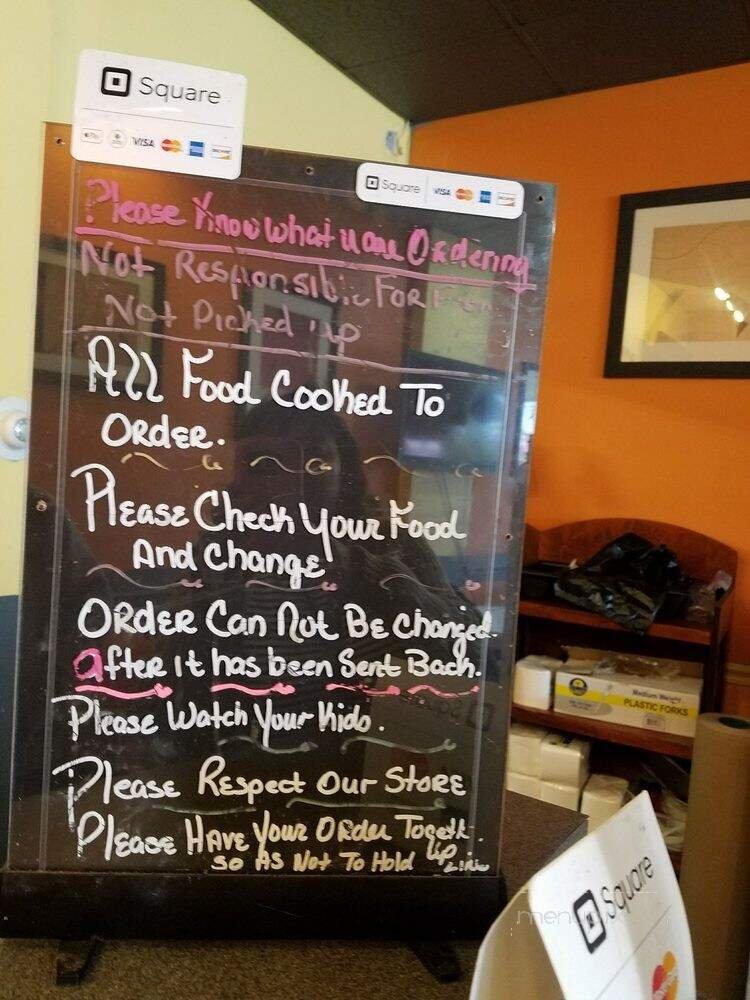 Square
VISA
Square VISA
Please Know what u are Ordering
Not Responsible FOR
Not Picked up
All Food Cooked To
ORDER.
Please Check Your Food
And Change
ORDER Can Not Be Changed.
after it has been Sent Back.
Please Watch Your Kids.
Please Respect Our STORE
Please HAVE Your ORder Togeth.
so As Not To Hold up Line
Medium Weight
PLASTIC FORKS
Square